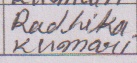 Radhika
Kumari